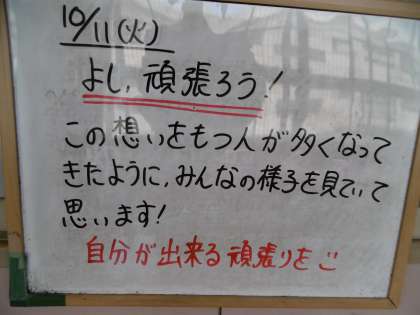 10/11(火)
よし,頑張ろう!
この想いをもつ人が多くなって
きたように,みんなの様子を見ていて
思います!
自分が出来る頑張りを